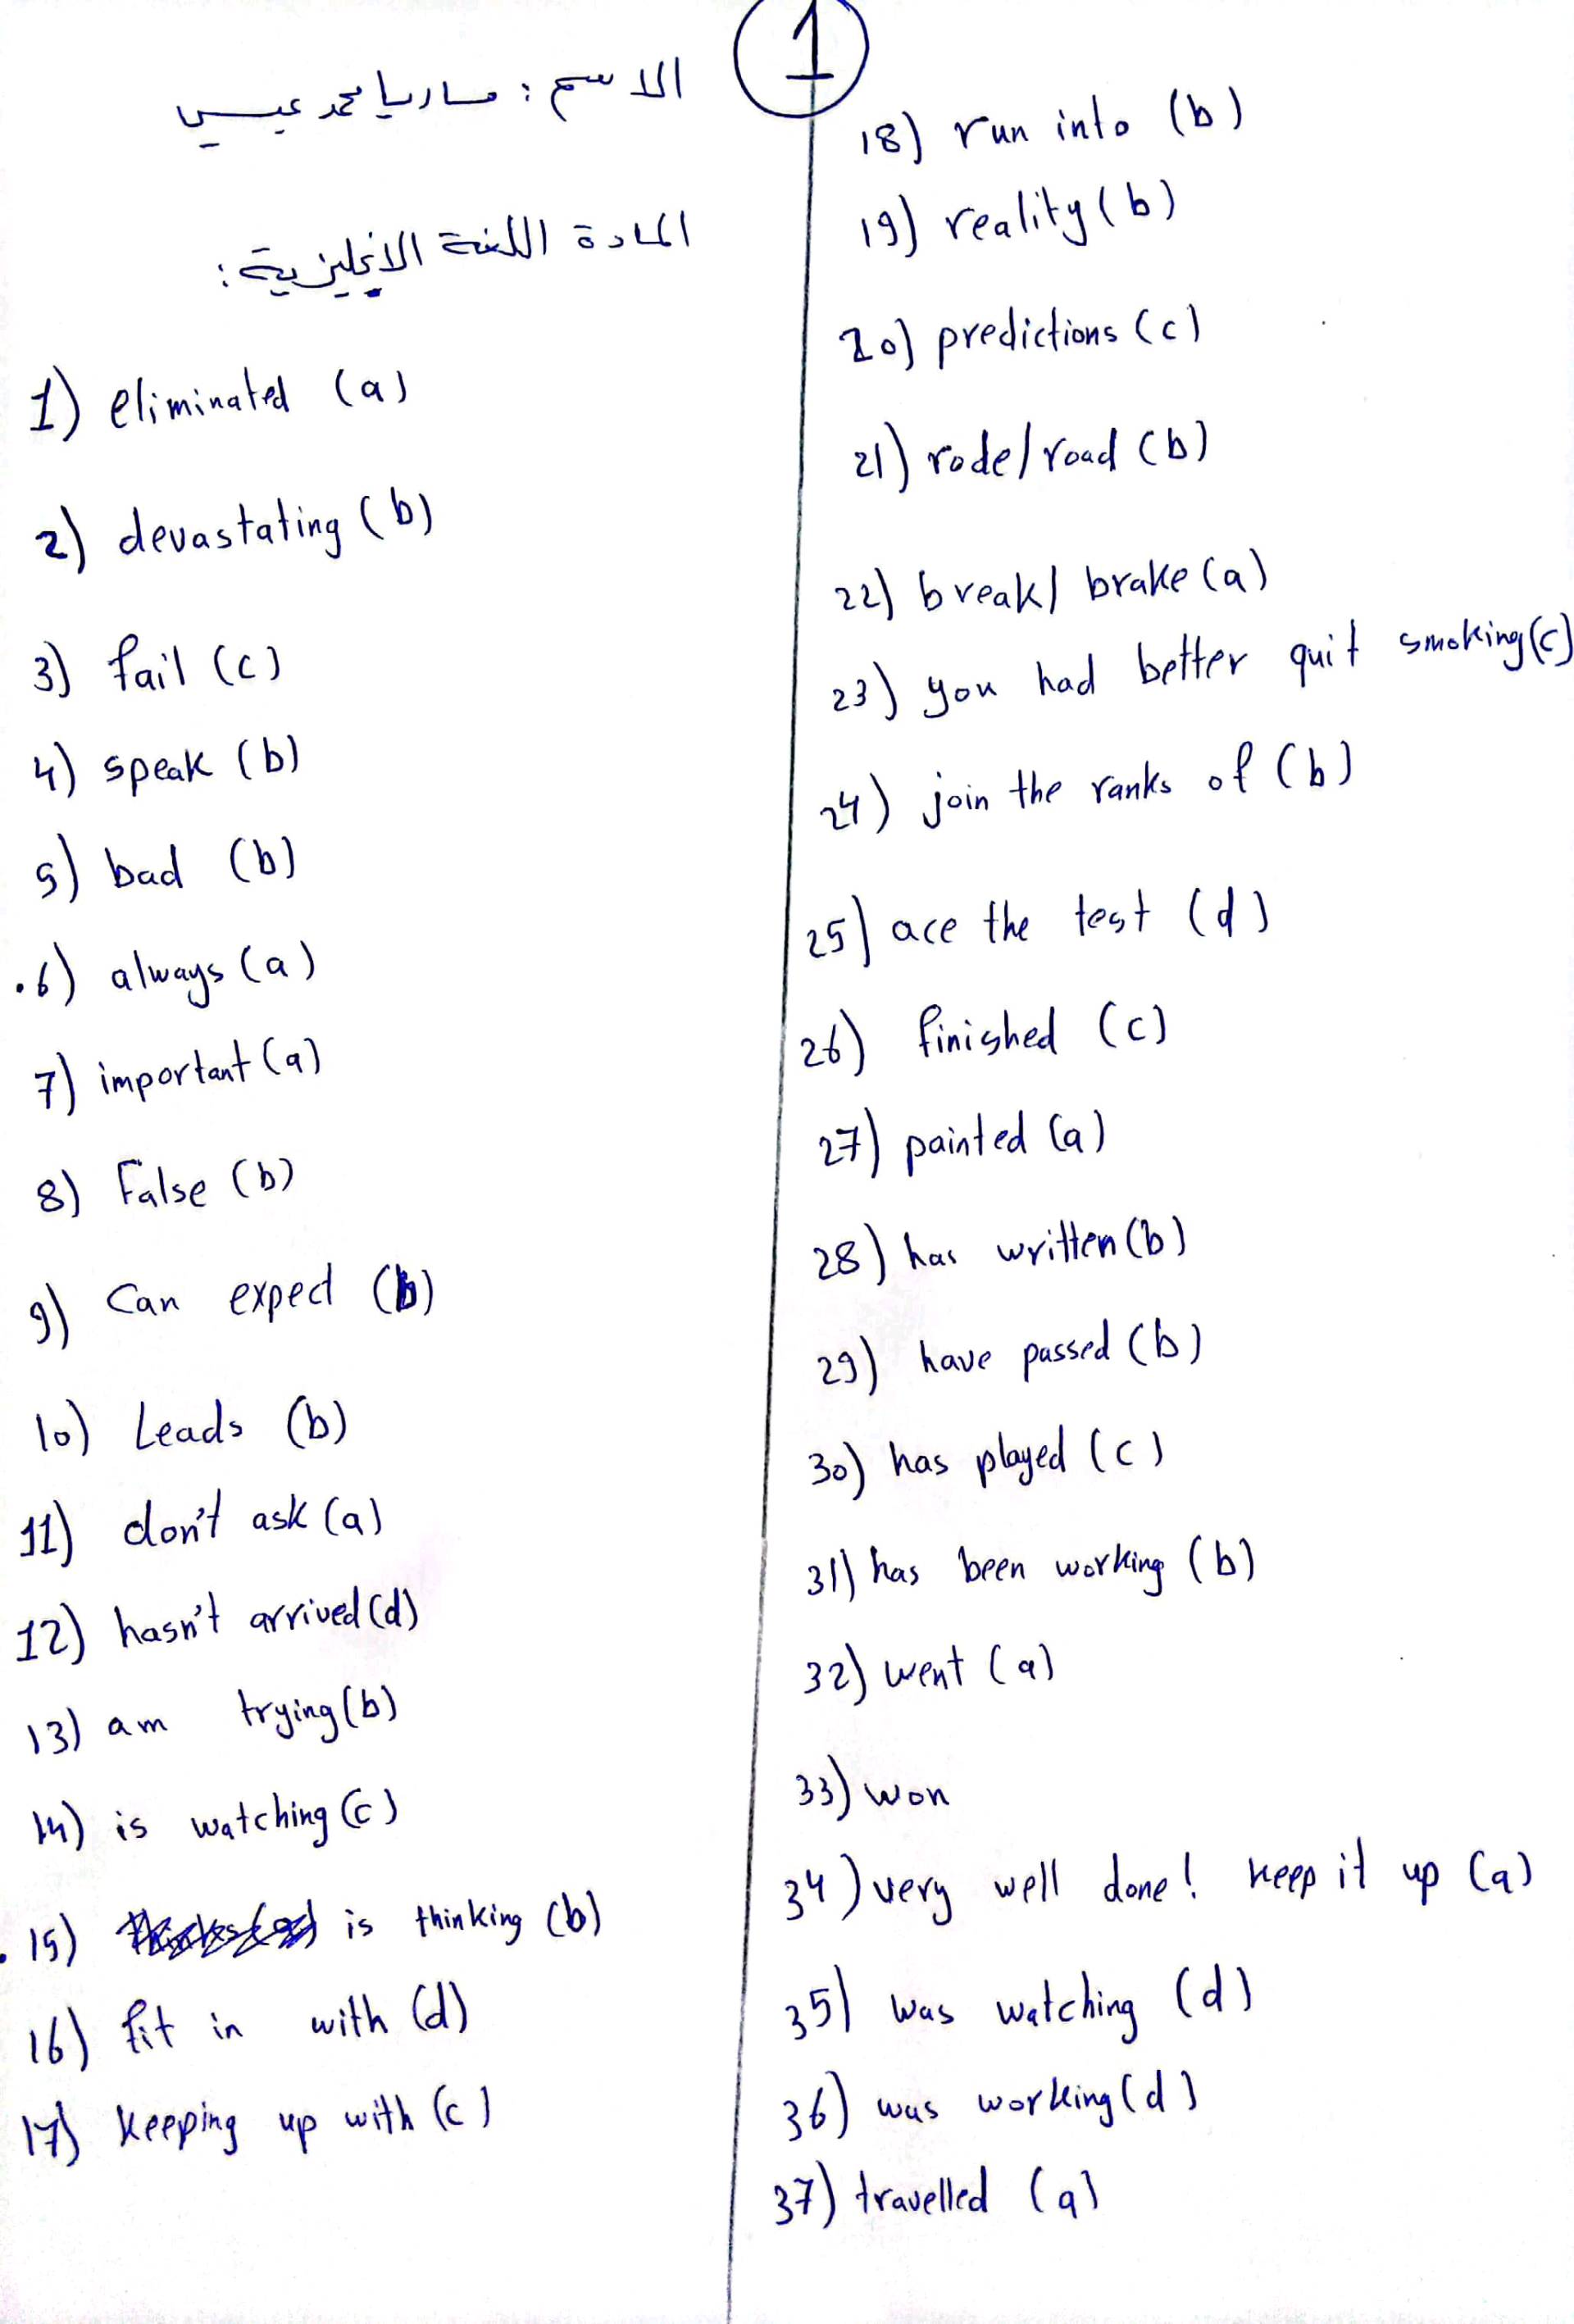 1
الاسم : ماريا محمد عيسى
المادة اللغة الانجليزية :
1) eliminated (a)
2) devastating (b)
3) fail (c)
4) speak (b)
5) bad (b)
.6) always (a)
7) important (a)
8) False (b)
9) Can expect (b)
10) Leads (b)
11) don't ask (a)
12) hasn't arrived (d)
13) am trying (b)
14) is watching (c)
.15) is thinking (b)
16) fit in with (d)
17) keeping up with (c)
18) run into (b)
19) reality (b)
20) predictions (c)
21) rode/road (b)
22) break/ brake (a)
23) you had better quit smoking (c)
24) join the ranks of (b)
25) ace the test (d)
26) finished (c)
27) painted (a)
28) has written (b)
29) have passed (b)
30) has played (c)
31) has been working (b)
32) went (a)
33) won
34) very well done! keep it up (a)
35) was watching (d)
36) was working (d)
37) travelled (a)